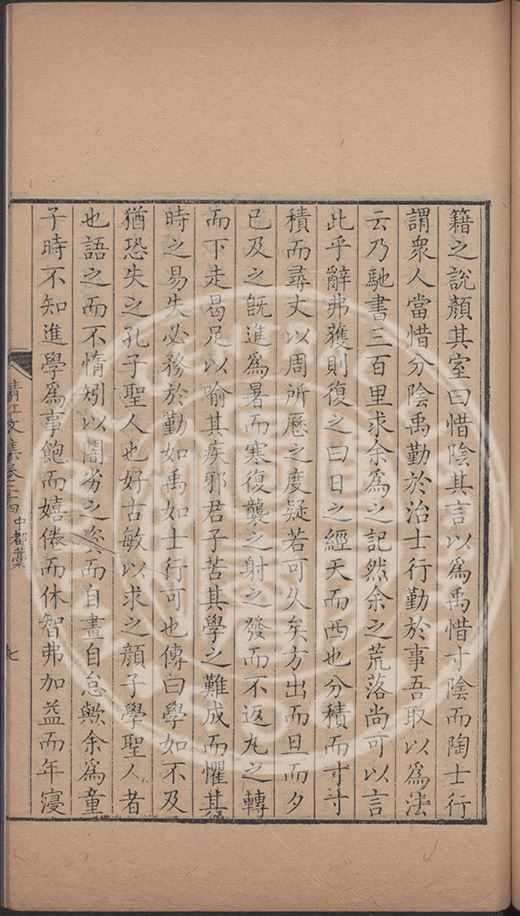 籍之說顏其室曰惜陰其言以爲禹惜寸陰而陶士行
謂衆人當惜分陰禹勤於治士行勤於事吾取以爲法
云乃馳書三百里求余爲之記然余之荒落尚可以言
此乎辭弗獲則復之曰日之經天而西也分積而寸寸
積而尋丈以周所歷之度疑若可久矣方出而旦而夕
已及之旣進爲暑而寒復襲之射之發而不返丸之轉
而下走曷足以喻其疾邪君子苦其學之難成而懼其
時之易失必務於勤如禹如士行可也傳曰學如不及
猶恐失之孔子聖人也好古敏以求之顏子學聖人者
也語之而不惰矧以闇劣之姿而自畫自怠歟余爲童
子時不知進學爲事飽而嬉倦而休智弗加益而年寖
清江文集卷二十四 中都藁 七